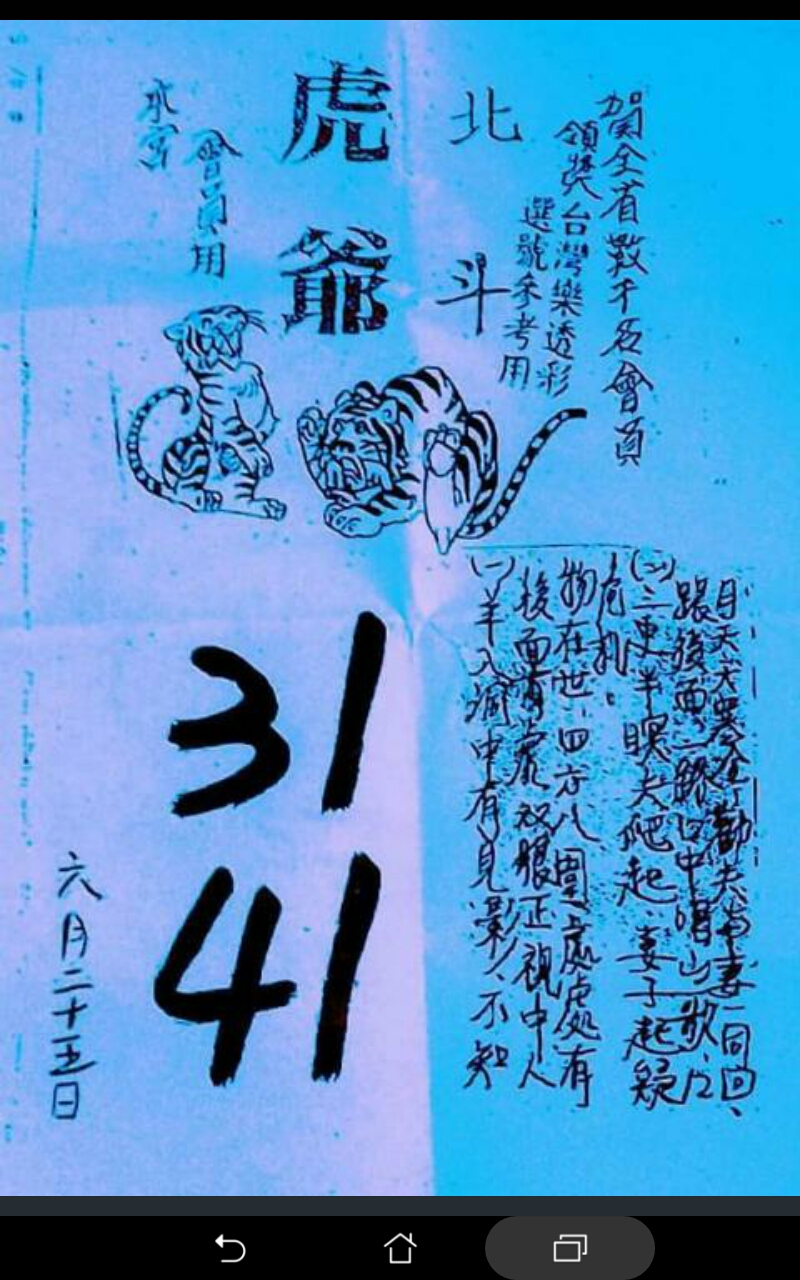 賀全省數千名會員
領獎台灣樂透彩
選號參考用
北斗
虎爺
會員用
(一)羊入洞中有見影、不知
後面有虎双眼正視中人
物在世、四方八圍、處處有
危利。
(二)三更半暝夫爬起、妻子起疑
跟後面、口中唱山歌、
勸夫妻一同回、
31
41
六月二十五日